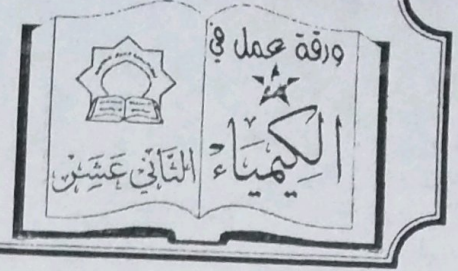 ورقة عمل في
الكِيمياءُ
الثَّاني عَشَرَ